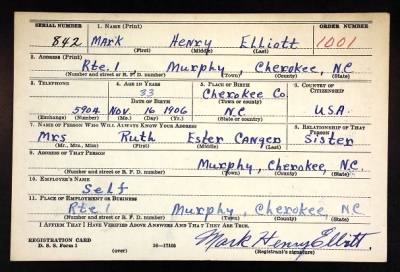 SERIAL NUMBER 1. NAME (Print) ORDER NUMBER
842 Mark Henry Elliott 1001
(First) (Middle) (Last)
2. ADDRESS (Print)
Rte. 1, Murphy, Cherokee, NC
(Number and street or R. F. D. number) (Town) (County) (State)
3. TELEPHONE 4. AGE IN YEARS 5. PLACE OF BIRTH 6. COUNTRY OF CITIZENSHIP
33 Cherokee Co.
DATE OF BIRTH (Town or county)
5904 Nov 16 1906 NC USA.
(Exchange) (Number) (Mo.) (Day) (Yr.) (State or country)
7. NAME OF PERSON WHO WILL ALWAYS KNOW YOUR ADDRESS 8. RELATIONSHIP OF THAT PERSON
Mrs Ruth Ester Sister
(Mr., Mrs., Miss) (First) (Middle) (Last)
9. ADDRESS OF THAT PERSON
Murphy, Cherokee, N.C.
(Number and street or R. F. D. number) (Town) (County) (State)
10. EMPLOYER'S NAME
Self
11. PLACE OF EMPLOYMENT OR BUSINESS
Rte 1 Murphy, Cherokee NC
(Number and street or R. F. D. number) (Town) (County) (State)
I AFFIRM THAT I HAVE VERIFIED ABOVE ANSWERS AND THAT THEY ARE TRUE.
REGISTRATION CARD
D. S. S. Form 1 16—17105 Mark Henry Elliott.
(over) (Registrant's signature)